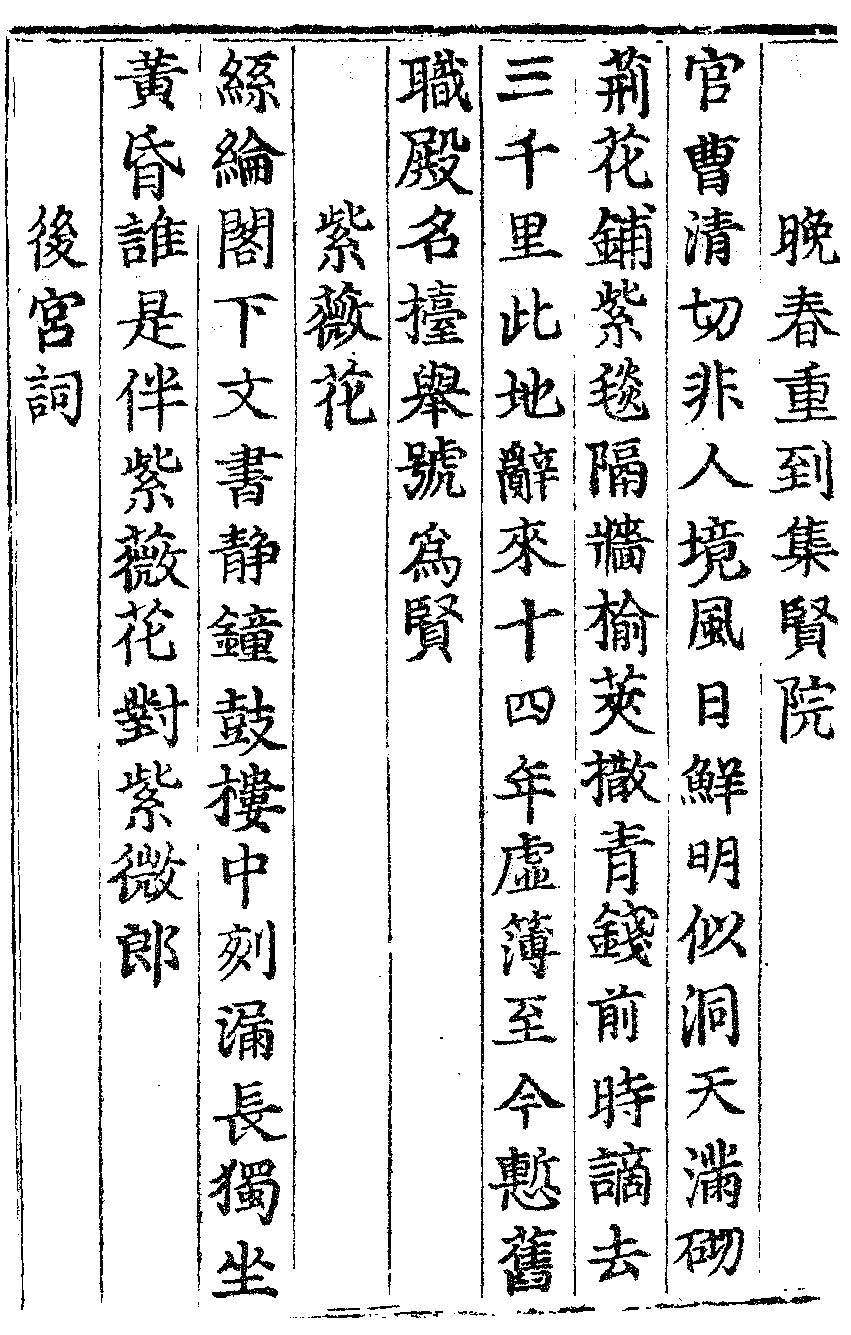 晚春重到集賢院
官曹清切非人境風日鮮明似洞天滿砌
荊花鋪紫毯隔牆榆莢撒青錢前時謫去
三千里此地辭來十四年虛簿至今慙舊
職殿名擡舉號爲賢
紫薇花
絲綸閣下文書靜鐘鼓樓中刻漏長獨坐
黃昏誰是伴紫薇花對紫微郎
後宮詞